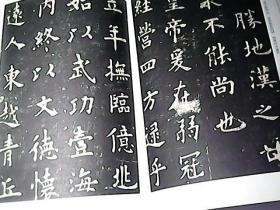 勝地漢之甘
泉不能尚也
皇帝爰在弱冠
經營四方逮乎
立年撫臨億兆
始以武功壹海
內終以文德懷
遠人東越青丘